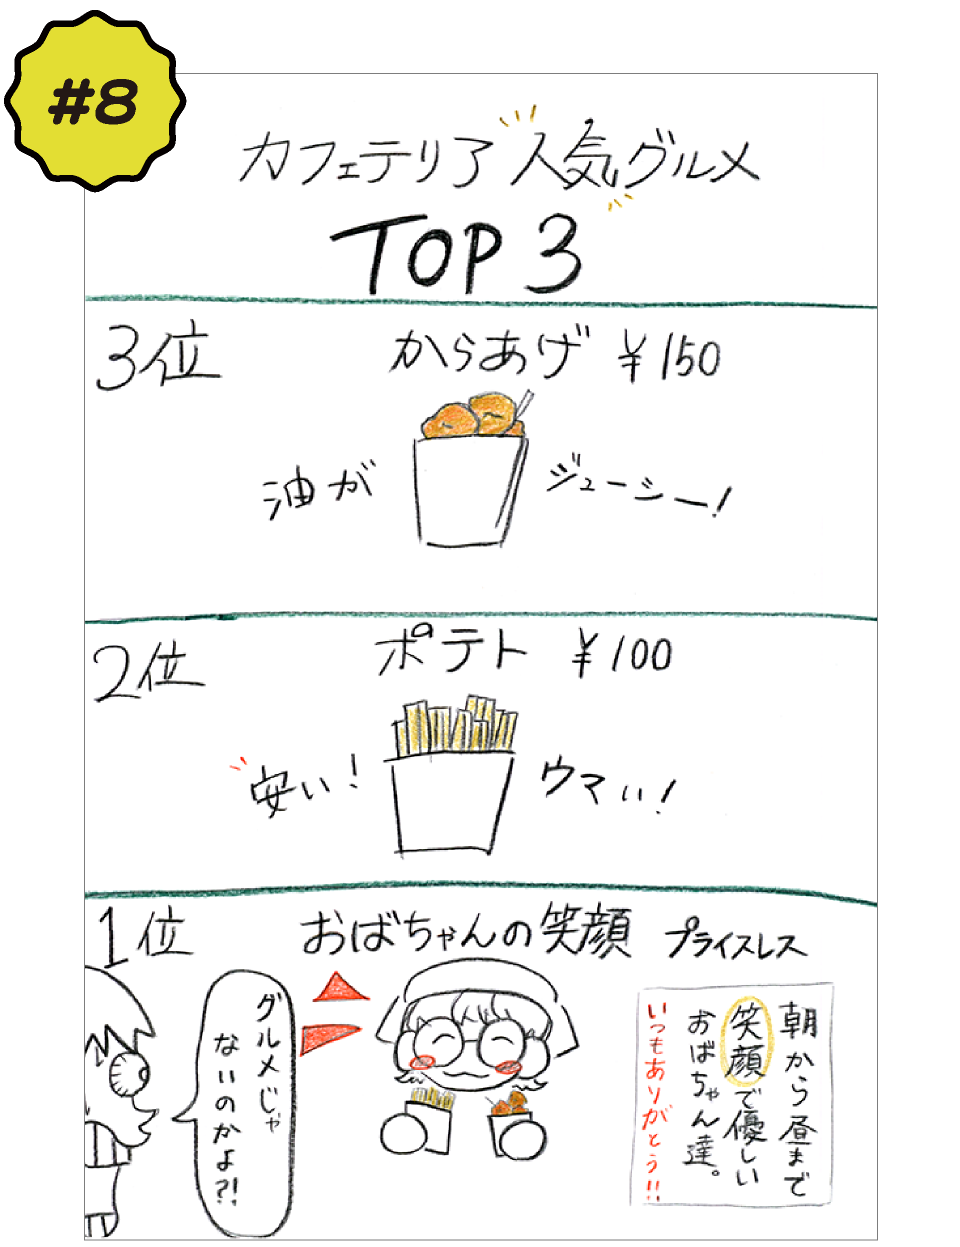 #8
カフェテリア人気グルメ
TOP 3
3位
からあげ ¥150
油が
ジューシー!
2位
ポテト ¥100
安い!
ウマい!
1位
おばちゃんの笑顔 プライスレス
グルメじゃ
ないのかよ?!
朝から昼まで
笑顔で優しい
おばちゃん達。
いつもありがとう!!